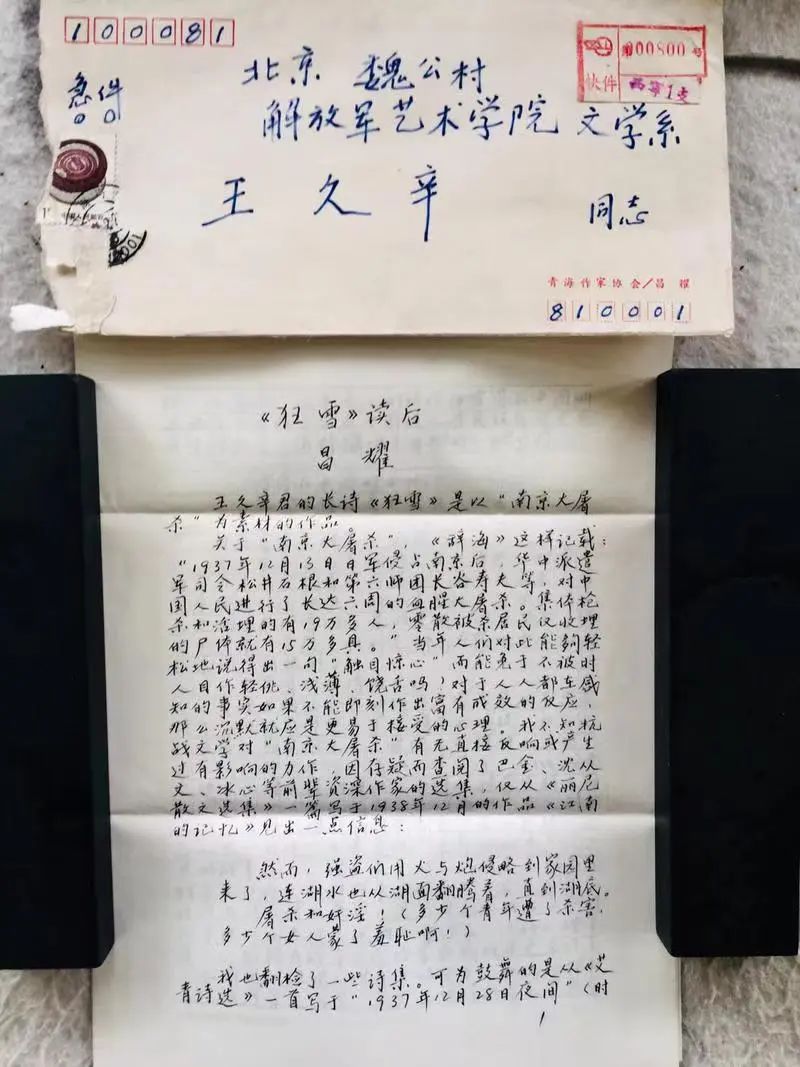 100081
第00800号
快件 西宁1支
急件
北京 魏公村
解放军艺术学院 文学系
王久辛 同志
青海作家协会/昌耀
810001
《狂雪》读后
昌耀
王久辛君的长诗《狂雪》是以“南京大屠
杀”为素材的作品。
关于“南京大屠杀”,《辞海》这样记载:
“1937年12月13日日军侵占南京后,华中派遣
军司令松井石根和第六师团长谷寿夫等,对中
国人民进行了长达六周的血腥大屠杀。集体枪
杀和活埋的有19万多人,零散被杀居民仅收埋
的尸体就有15万多具。”当年人们对此能够轻
松地说得出一句“触目惊心”而能免于不被时
人目作轻佻、浅薄、饶舌吗?对于人人都在感
知的事实如果不能即刻作出富有成效的反应,
那么沉默就应是更易于接受的心理。我不知抗
战文学对“南京大屠杀”有无直接反响或产生
过有影响的力作,因存疑而查阅了巴金、沈从
文、冰心等前辈资深作家的选集,仅从《丽尼
散文选集》一篇写于1938年12月的作品《江南
的记忆》见出一点信息:
然而,强盗们用火与炮侵略到家园里
来了,连湖水也从湖面翻腾着,直到湖底。
屠杀和奸淫!(多少个青年遭了杀害,
多少个女人蒙了羞耻啊!)
我也翻检了一些诗集。可为鼓舞的是从《艾
青诗选》一首写于“1937年12月28日夜间”(时
1